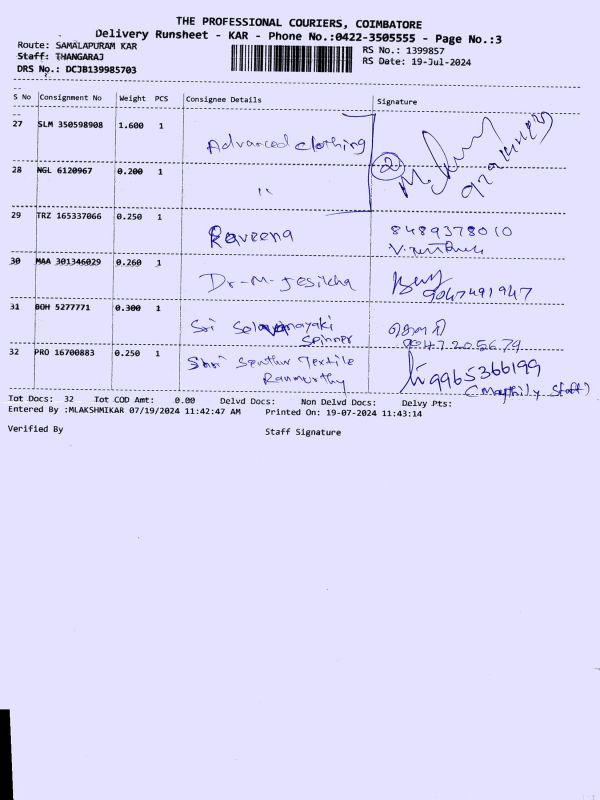 THE PROFESSIONAL COURIERS, COIMBATORE
Delivery Runsheet - KAR - Phone No.:0422-3505555 - Page No.:3
Route: SAMALAPURAM KAR
RS No.: 1399857
Staff: THANGARAJ
RS Date: 19-Jul-2024
DRS No.: DCJB139985703
S No Consignment No Weight PCS Consignee Details Signature
27 SLM 350598908 1.600 1 Advanced clothing
28 NGL 6120967 0.200 1 " 2
29 TRZ 165337066 0.250 1 Raveena 8489378010
30 MAA 301346029 0.260 1 Dr-M-Jesikha 9047491947
31 BOH 5277771 0.300 1 Sri
Spinner 9047205679
32 PRO 16700883 0.250 1 Shri Senthur Textile 9965366199
Ranmurthy (Mythily Staff)
Tot Docs: 32 Tot COD Amt: 0.00 Delvd Docs: Non Delvd Docs: Delvy Pts:
Entered By :MLAKSHMIKAR 07/19/2024 11:42:47 AM Printed On: 19-07-2024 11:43:14
Verified By
Staff Signature